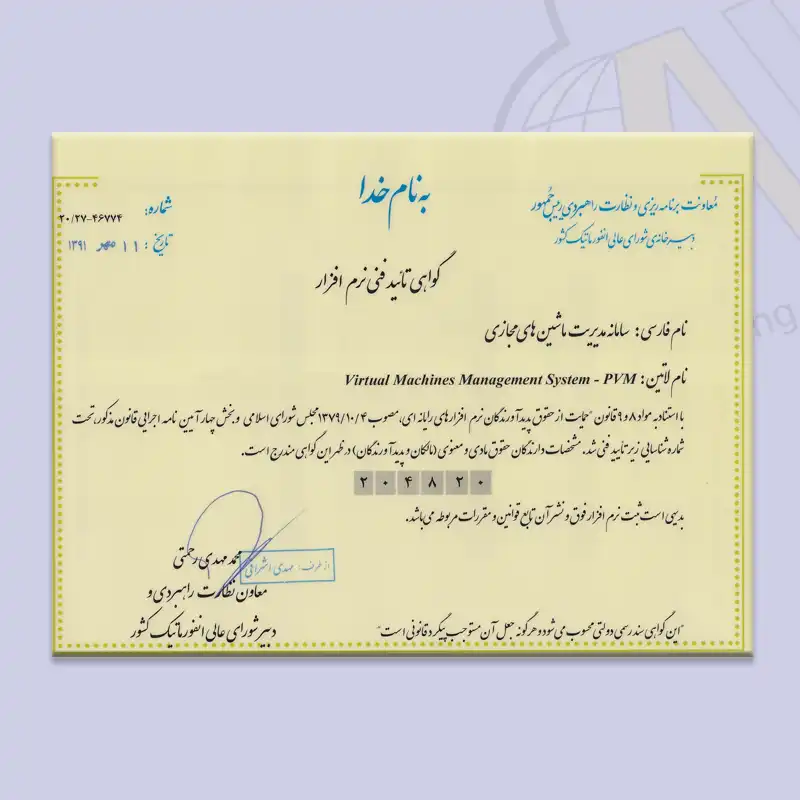 به نام خدا
معاونت برنامه ریزی و نظارت راهبردی رییس جمهور
دبیرخانه‌ی شورای عالی انفورماتیک کشور
شماره: ۲۰/۲۷-۴۶۷۷۴
تاریخ: ۱۱ مهر ۱۳۹۱
گواهی تائید فنی نرم افزار
نام فارسی: سامانه مدیریت ماشین های مجازی
نام لاتین: Virtual Machines Management System - PVM
با استناد به مواد ۸ و ۹ قانون حمایت از حقوق پدیدآورندگان نرم افزارهای رایانه ای، مصوب ۱۳۷۹/۱۰/۴ مجلس شورای اسلامی و بخش چهار آیین نامه اجرایی قانون مذکور، تحت
شماره شناسایی زیر تأیید فنی شد. مشخصات دارندگان حقوق مادی و معنوی (مالکان و پدیدآورندگان) در ظهر این گواهی مندرج است.
۲ ۰ ۴ ۸ ۲ ۰
بدیهی است ثبت نرم افزار فوق و نشر آن تابع قوانین و مقررات مربوطه می‌باشد.
محمد مهدی رحمتی
از طرف: مهدی اشراقی
معاون نظارت راهبردی و
دبیر شورای عالی انفورماتیک کشور
"این گواهی سند رسمی دولتی محسوب می شود و هرگونه جعل آن مستوجب پیگرد قانونی است"